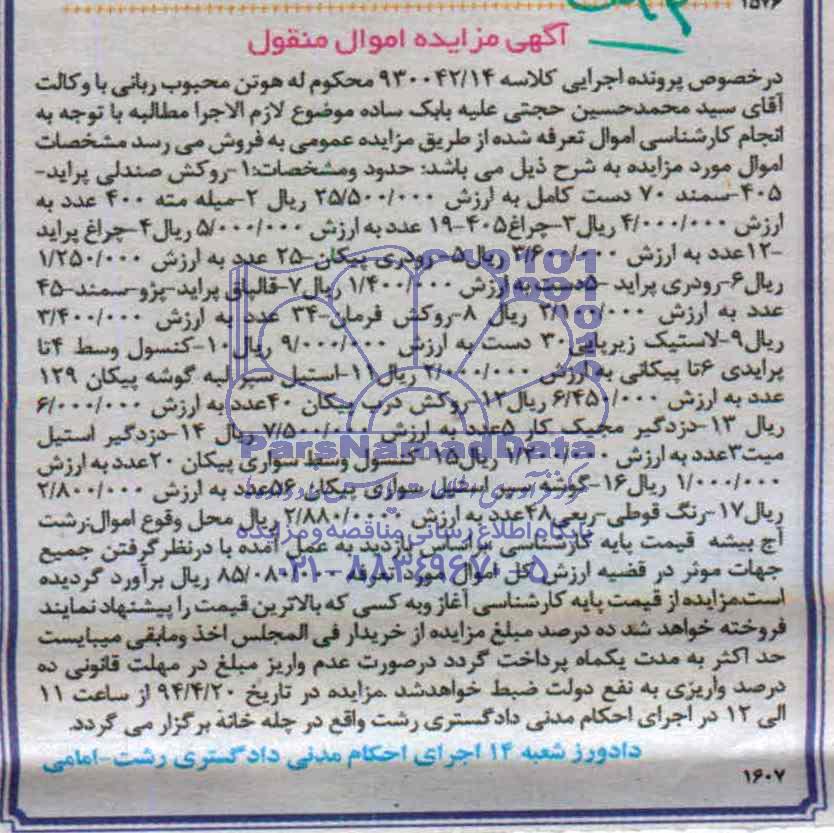 ۱۵۷۶
آگهی مزایده اموال منقول
درخصوص پرونده اجرایی کلاسه ۹۳۰۰۴۲/۱۴ محکوم له هوتن محبوب ربانی با وکالت
آقای سید محمدحسین حجتی علیه بابک ساده موضوع لازم الاجرا مطالبه با توجه به
انجام کارشناسی اموال تعرفه شده از طریق مزایده عمومی به فروش می رسد مشخصات
اموال مورد مزایده به شرح ذیل می باشد: حدود ومشخصات:۱-روکش صندلی پراید-
۴۰۵-سمند ۷۰ دست کامل به ارزش ۲۵/۵۰۰/۰۰۰ ریال ۲-میله مته ۴۰۰ عدد به
ارزش ۴/۰۰۰/۰۰۰ ریال۳-چراغ۴۰۵-۱۹ عدد به ارزش ۵/۰۰۰/۰۰۰ ریال۴-چراغ پراید
-۱۲عدد به ارزش ۳/۶۰۰/۰۰۰ ریال۵- رودری پیکان-۲۵ عدد به ارزش ۱/۲۵۰/۰۰۰
ریال۶-رودری پراید -۵دست به ارزش ۱/۴۰۰/۰۰۰ ریال۷-قالپاق پراید-پژو-سمند-۴۵
عدد به ارزش ۳/۱۰۰/۰۰۰ ریال ۸-روکش فرمان-۳۴ عدد به ارزش ۳/۴۰۰/۰۰۰
ریال۹-لاستیک زیرپایی۳۰ دست به ارزش ۹/۰۰۰/۰۰۰ ریال۱۰-کنسول وسط ۴تا
پرایدی ۶تا پیکانی به ارزش ۲/۰۰۰/۰۰۰ ریال۱۱-استیل سپر لبه گوشه پیکان ۱۲۹
عدد به ارزش ۶/۴۵۰/۰۰۰ ریال۱۲-روکش درب پیکان ۴۰عدد به ارزش ۶/۰۰۰/۰۰۰
ریال ۱۳-دزدگیر مجیک کار ۵عدد به ارزش ۷/۵۰۰/۰۰۰ ریال ۱۴-دزدگیر استیل
میت۳عدد به ارزش ۱/۲۰۰/۰۰۰ ریال۱۵-کنسول وسط سواری پیکان ۲۰عدد به ارزش
۱/۰۰۰/۰۰۰ ریال۱۶-گوشه سپر استیل سواری پیکان ۵۶عدد به ارزش ۲/۸۰۰/۰۰۰
ریال۱۷-رنگ قوطی-ربعی۴۸عدد به ارزش ۲/۸۸۰/۰۰۰۰ ریال محل وقوع اموال:رشت
آج بیشه قیمت پایه کارشناسی براساس بازدید به عمل آمده با درنظرگرفتن جمیع
جهات موثر در قضیه ارزش کل اموال مورد تعرفه ۸۵/۰۸۰ ریال برآورد گردیده
است.مزایده از قیمت پایه کارشناسی آغاز وبه کسی که بالاترین قیمت را پیشنهاد نمایند
فروخته خواهد شد ده درصد مبلغ مزایده از خریدار فی المجلس اخذ ومابقی میبایست
حد اکثر به مدت یکماه پرداخت گردد درصورت عدم واریز مبلغ در مهلت قانونی ده
درصد واریزی به نفع دولت ضبط خواهدشد .مزایده در تاریخ ۹۴/۴/۲۰ از ساعت ۱۱
الی ۱۲ در اجرای احکام مدنی دادگستری رشت واقع در چله خانه برگزار می گردد.
دادورز شعبه ۱۴ اجرای احکام مدنی دادگستری رشت-امامی
۱۶۰۷
ParsNamadData
پایگاه اطلاع رسانی مناقصه و مزایده
۰۲۱-۸۸۳۴۹۶۷۰-۵